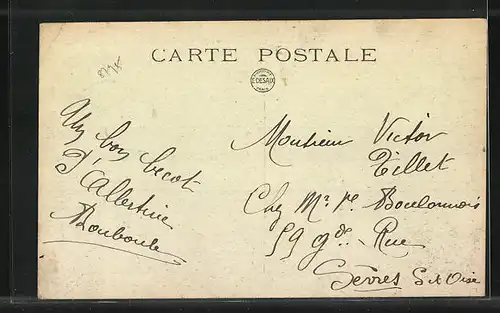 8775
CARTE POSTALE
E. DESAIX
PARIS
Un bon becot
D'Allertine
Bouboule
Monsieur Victor
Tillet
Chez Mr Boulonnois
59 gde Rue
Sèvres S et Oise